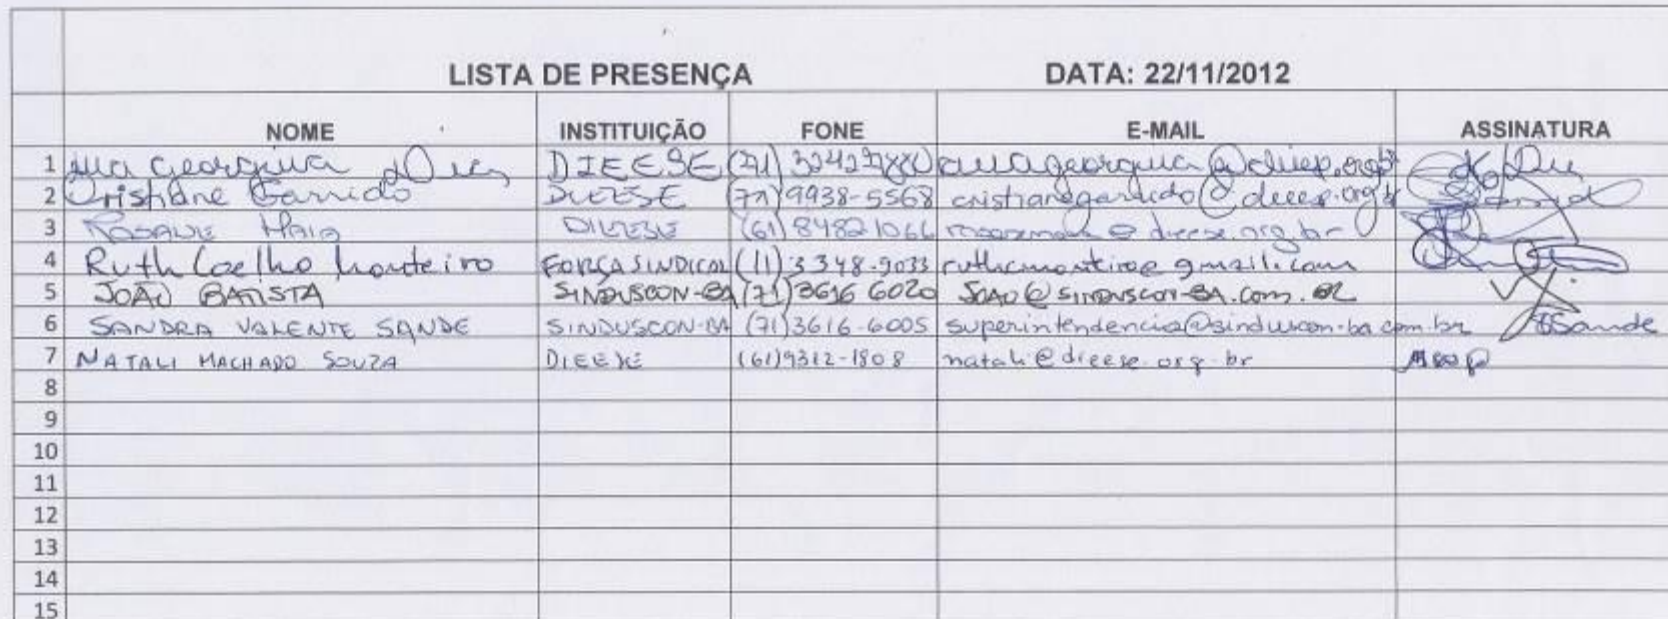 LISTA DE PRESENÇA DATA: 22/11/2012
NOME INSTITUIÇÃO FONE E-MAIL ASSINATURA
1 Ana Georgina Dias DIEESE (71) 3242-7880 anageorgina@dieese.org.br
2 Cristiane Garrido DIEESE (71) 9938-5568 cristianegarrido@dieese.org.br
3 Rosane Maia DIEESE (61) 84821066 rosanemaia@dieese.org.br
4 Ruth Coelho Monteiro FORÇA SINDICAL (11) 3348-9033 ruthcmonteiro@gmail.com
5 JOÃO BATISTA SINDUSCON-BA (71) 3616 6020 JOAO@SINDUSCON-BA.COM.BR
6 SANDRA VALENTE SANDE SINDUSCON-BA (71) 3616-6005 superintendencia@sinduscon-ba.com.br SSande
7 NATALI MACHADO SOUZA DIEESE (61) 9312-1808 natali@dieese.org.br
8
9
10
11
12
13
14
15